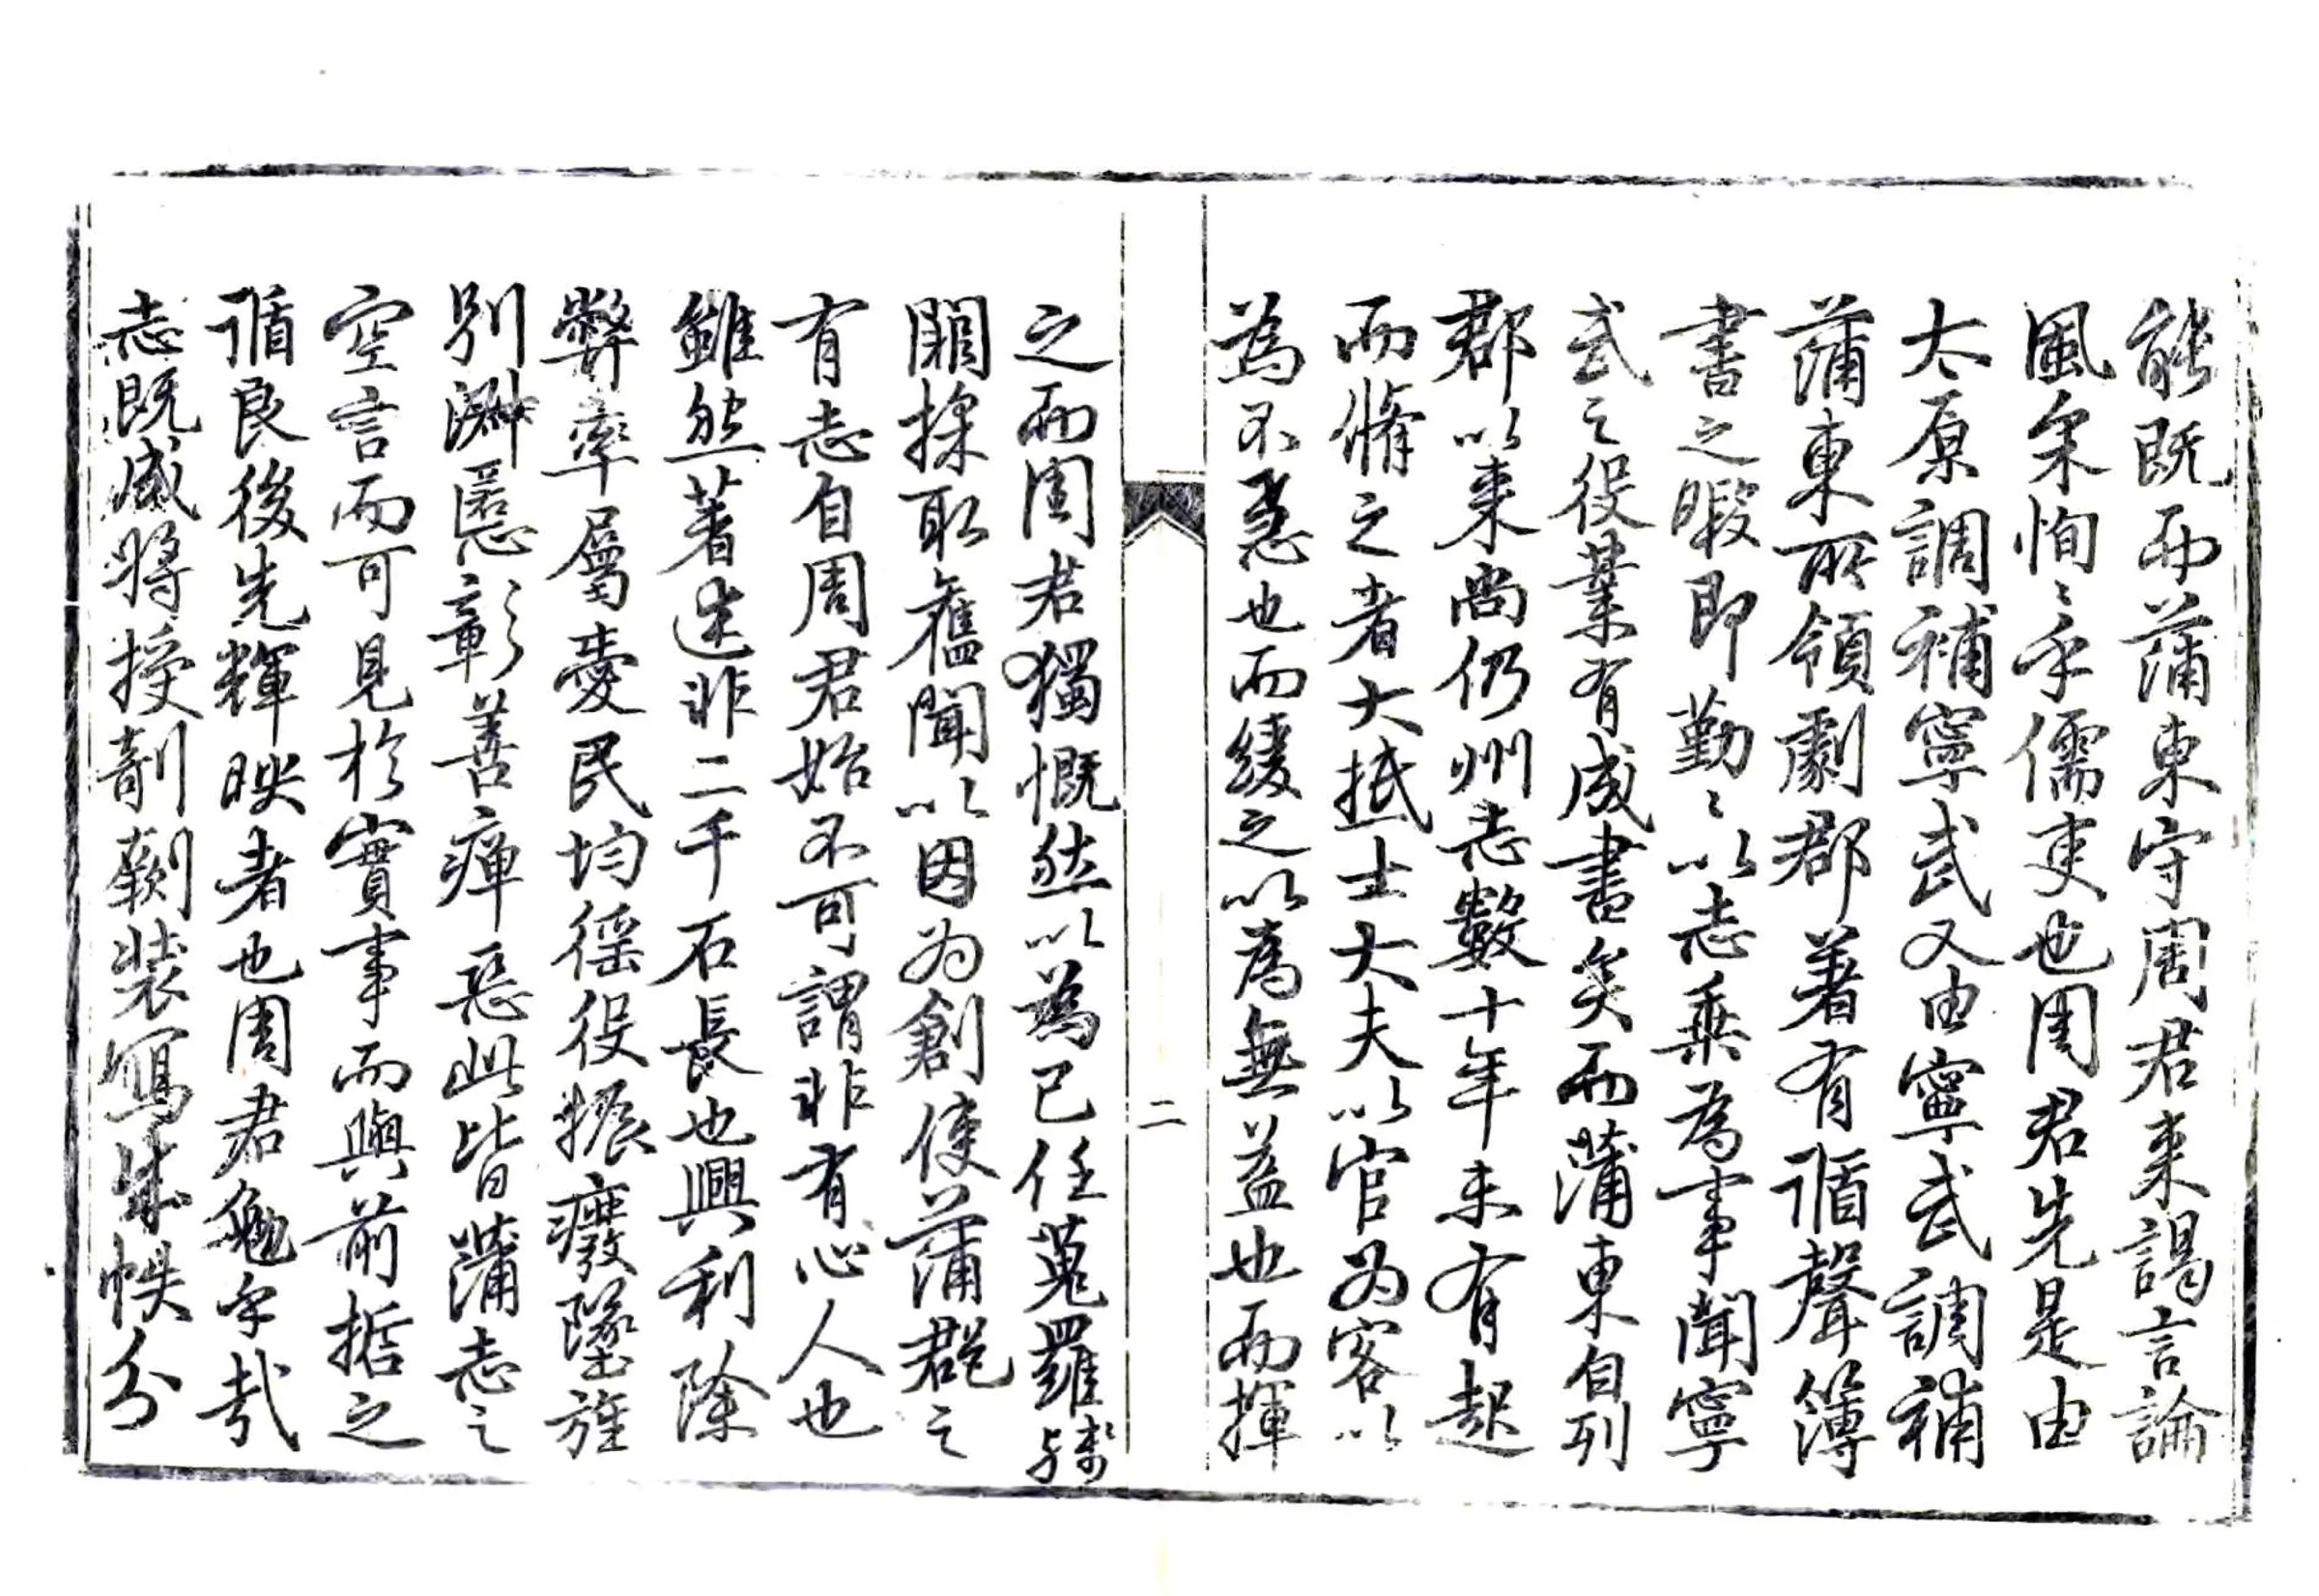 能既而蒲東守周君来謁言論
風采恂〻乎儒吏也周君先是由
太原調補寧武又由寧武調補
蒲東所領劇郡著有循聲簿
書之暇即勤〻以志乗為事聞寧
武之役業有成書矣而蒲東自列
郡以来尚仍州志數十年未有起
而脩之者大抵士大夫以官為客以
為不急也而緩之以為無益也而揮
二
之而周君獨慨然以為己任蒐羅残
闕採取舊聞以因為創使蒲郡之
有志自周君始不可謂非有心人也
雖然著述非二千石長也興利除
弊率屬愛民均徭役振癈墜旌
別淑慝彰善癉惡此皆蒲志之
空言而可見於實事而與前哲之
循良後先輝映者也周君勉乎哉
志既成將授剞劂装寫成帙分